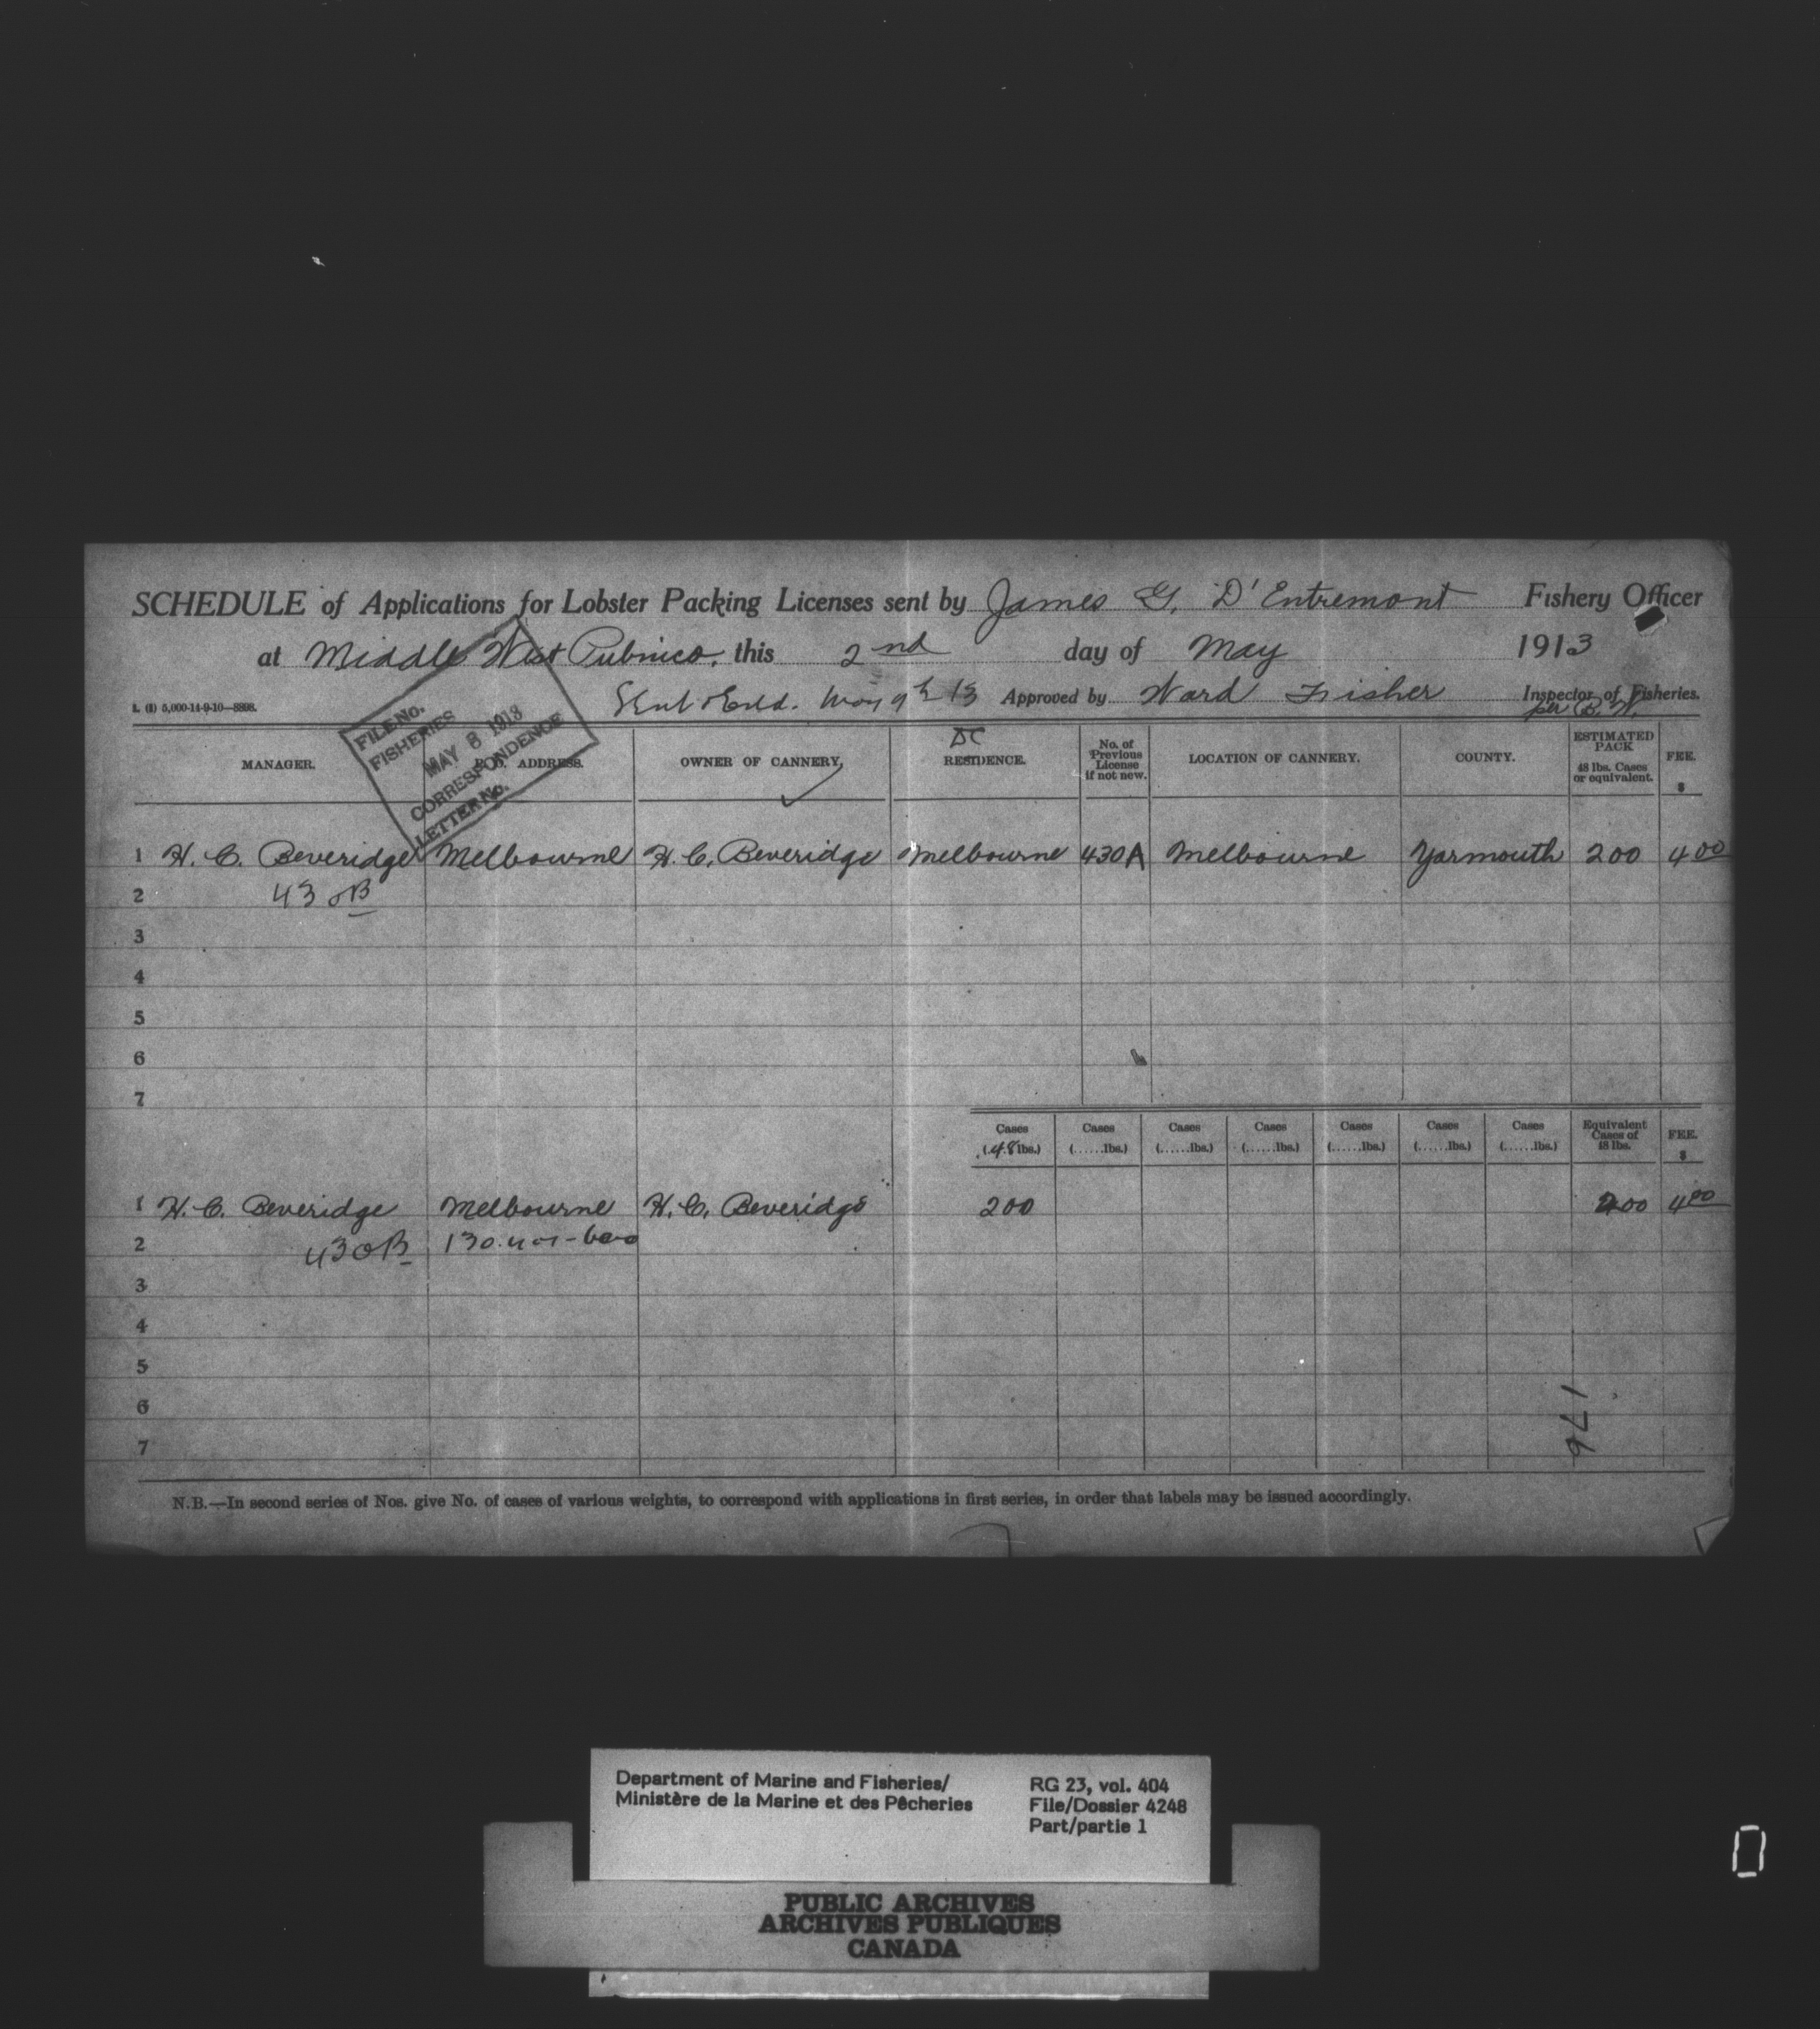 SCHEDULE of Applications for Lobster Packing Licenses sent by James G. D'Entremont Fishery Officer
at Middle West Pubnico, this 2nd day of May 1913
Approved by Ward Fisher Inspector of Fisheries.
per B. W.
L (8) 5,000-14-9-10—8898.
FILE No.
FISHERIES
MAY 8 1913
CORRESPONDENCE
LETTER No.
MANAGER. P. O. ADDRESS. OWNER OF CANNERY, RESIDENCE. No. of Previous License if not new. LOCATION OF CANNERY. COUNTY. ESTIMATED PACK 48 lbs. Cases or equivalent. FEE. $
1 H. C. Beveridge Melbourne H. C. Beveridge Melbourne 430A Melbourne Yarmouth 200 4 00
2 430B
3
4
5
6
7
Cases (48 lbs.) Cases (......lbs.) Cases (......lbs.) Cases (......lbs.) Cases (......lbs.) Cases (......lbs.) Cases (......lbs.) Equivalent Cases of 48 lbs. FEE. $
1 H. C. Beveridge Melbourne H. C. Beveridge 200 200 4 00
2 430B
3
4
5
6
7
176
N.B.—In second series of Nos. give No. of cases of various weights, to correspond with applications in first series, in order that labels may be issued accordingly.
Department of Marine and Fisheries/
Ministère de la Marine et des Pêcheries
RG 23, vol. 404
File/Dossier 4248
Part/partie 1
PUBLIC ARCHIVES
ARCHIVES PUBLIQUES
CANADA